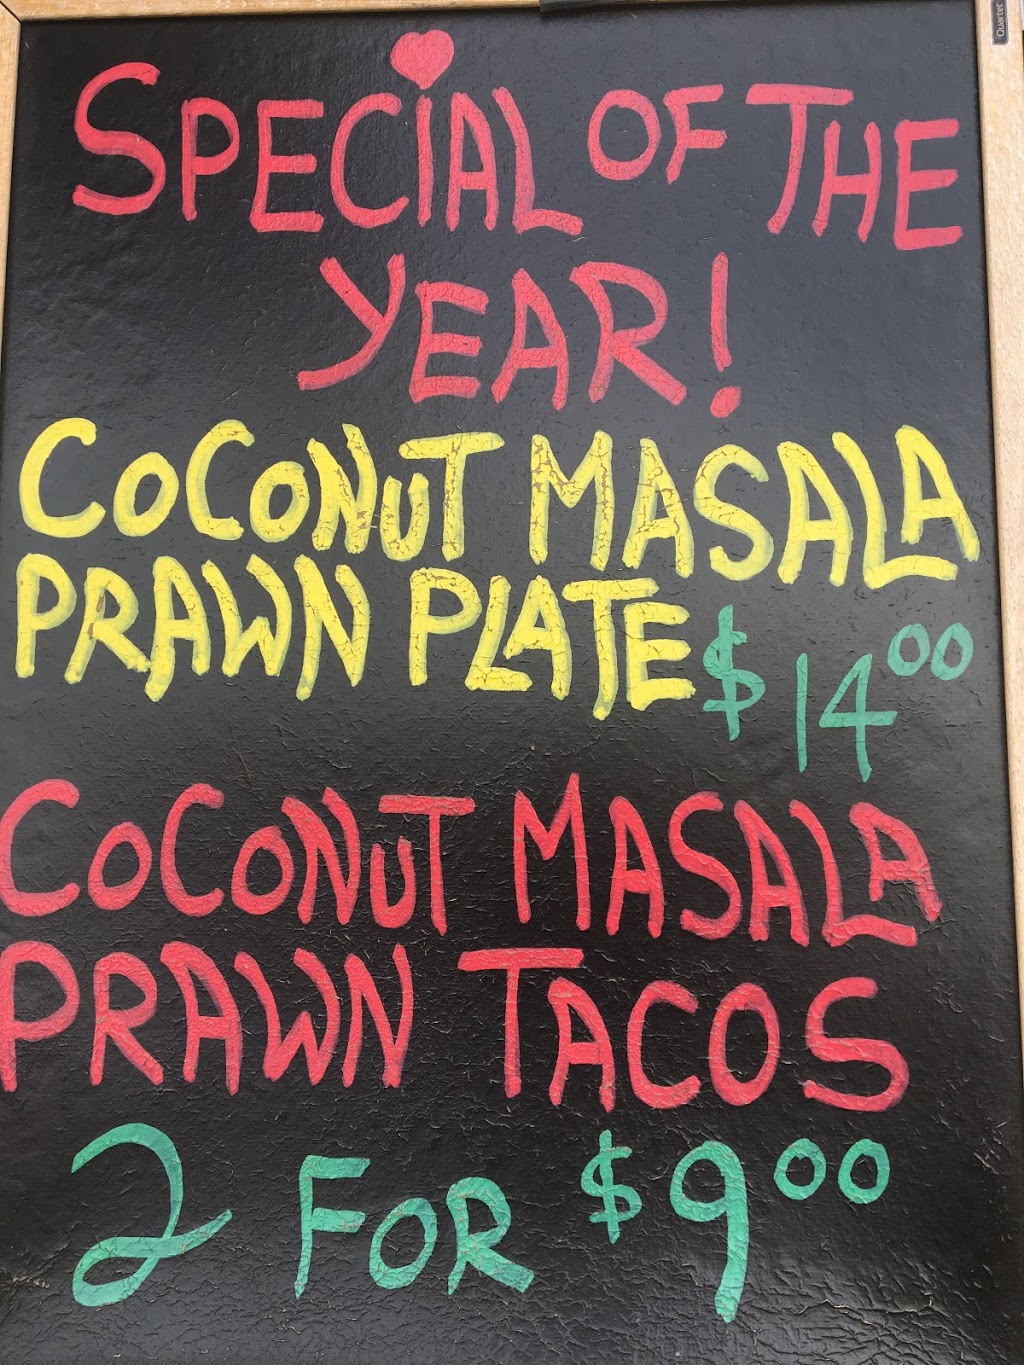 SPECIAL OF THE
YEAR!
COCONUT MASALA
PRAWN PLATE $14.00
COCONUT MASALA
PRAWN TACOS
2 FOR $9.00
Quartet